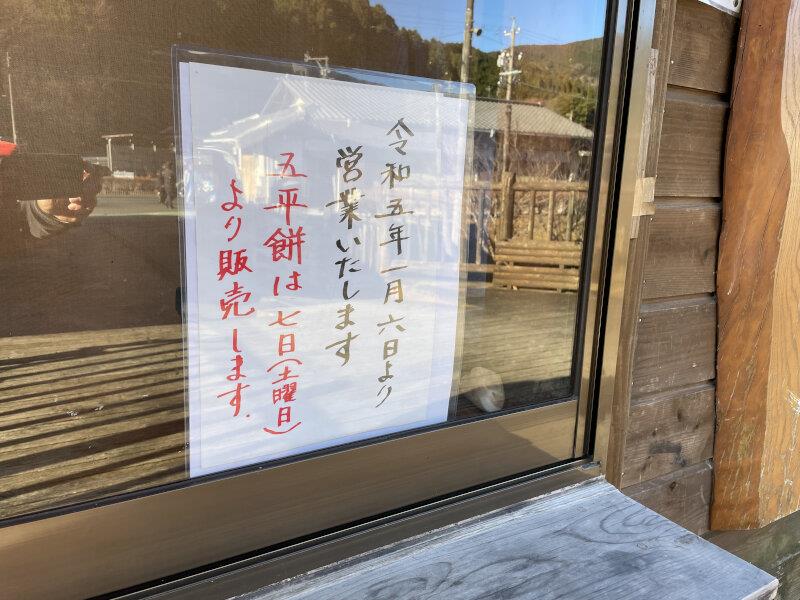 令和五年一月六日より
営業いたします
五平餅は七日(土曜日)
より販売します.